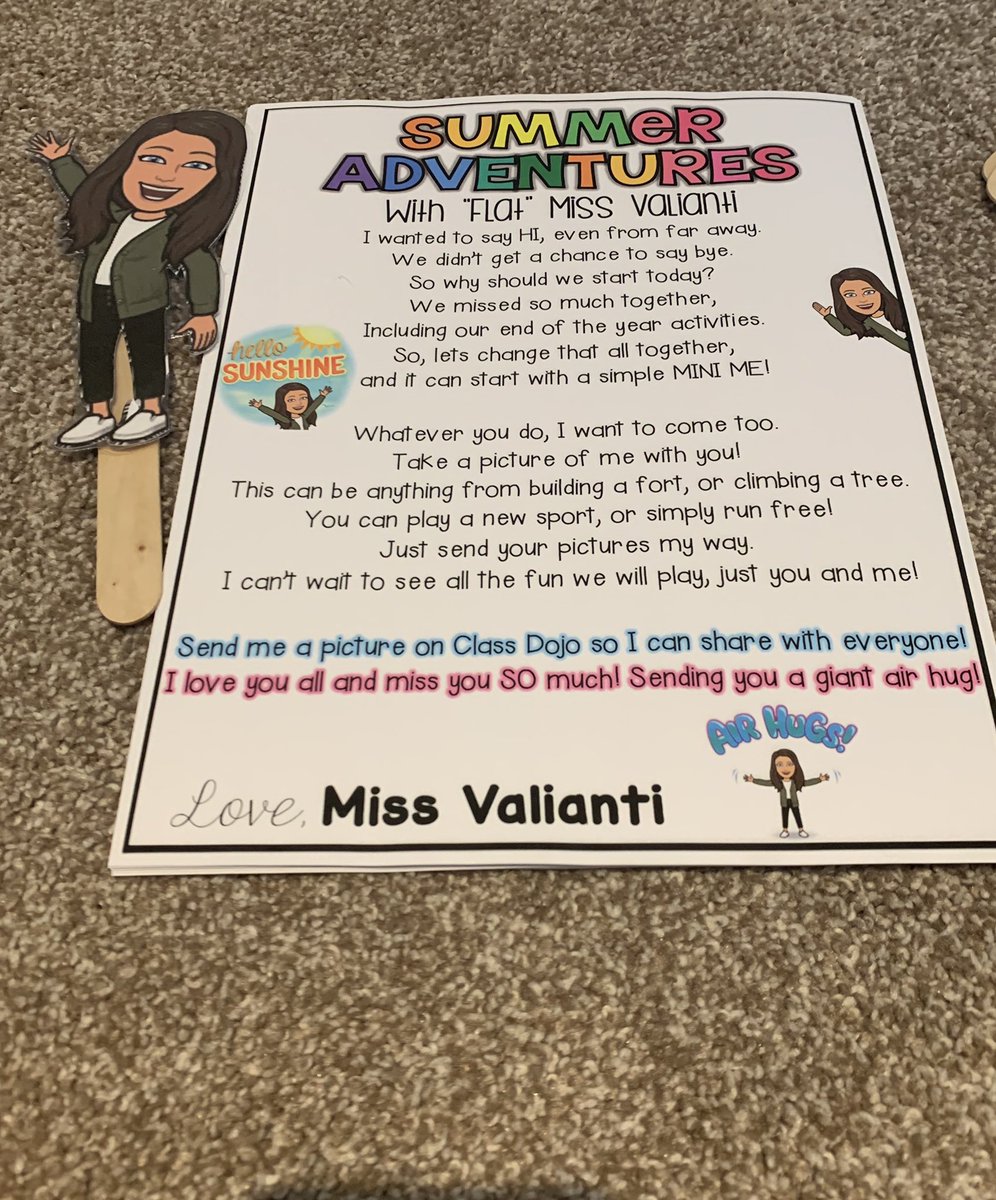 SUMMER
ADVENTURES
With "Flat" Miss Valianti
I wanted to say HI, even from far away.
We didn't get a chance to say bye.
So why should we start today?
We missed so much together,
Including our end of the year activities.
So, lets change that all together,
and it can start with a simple MINI ME!
hello
SUNSHINE
Whatever you do, I want to come too.
Take a picture of me with you!
This can be anything from building a fort, or climbing a tree.
You can play a new sport, or simply run free!
Just send your pictures my way.
I can't wait to see all the fun we will play, just you and me!
Send me a picture on Class Dojo so I can share with everyone!
I love you all and miss you SO much! Sending you a giant air hug!
AIR HUGS!
Love, Miss Valianti